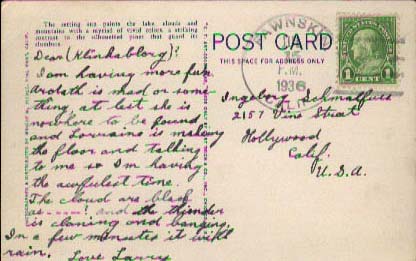 The setting sun paints the lake, clouds and
mountains with a myriad of vivid colors, a striking
contrast to the silhouetted pines that guard its
slumber.
Dear (Klinkablorg)?
I am having more fun.
is mad or some
thing, at least she is
nowhere to be found
and Lorraine is making
the floor and talking
to me so I'm having
the awfulest time.
The cloud are black
as ----! and the thunder
is claning and banging.
In a few minutes it will
rain. Love Larry
POST CARD
THIS SPACE FOR ADDRESS ONLY
P.M.
1936
1 CENT 1
Ingeborg Schmalfuss
2157 Vine Street
Hollywood
Calif.
U.S.A.